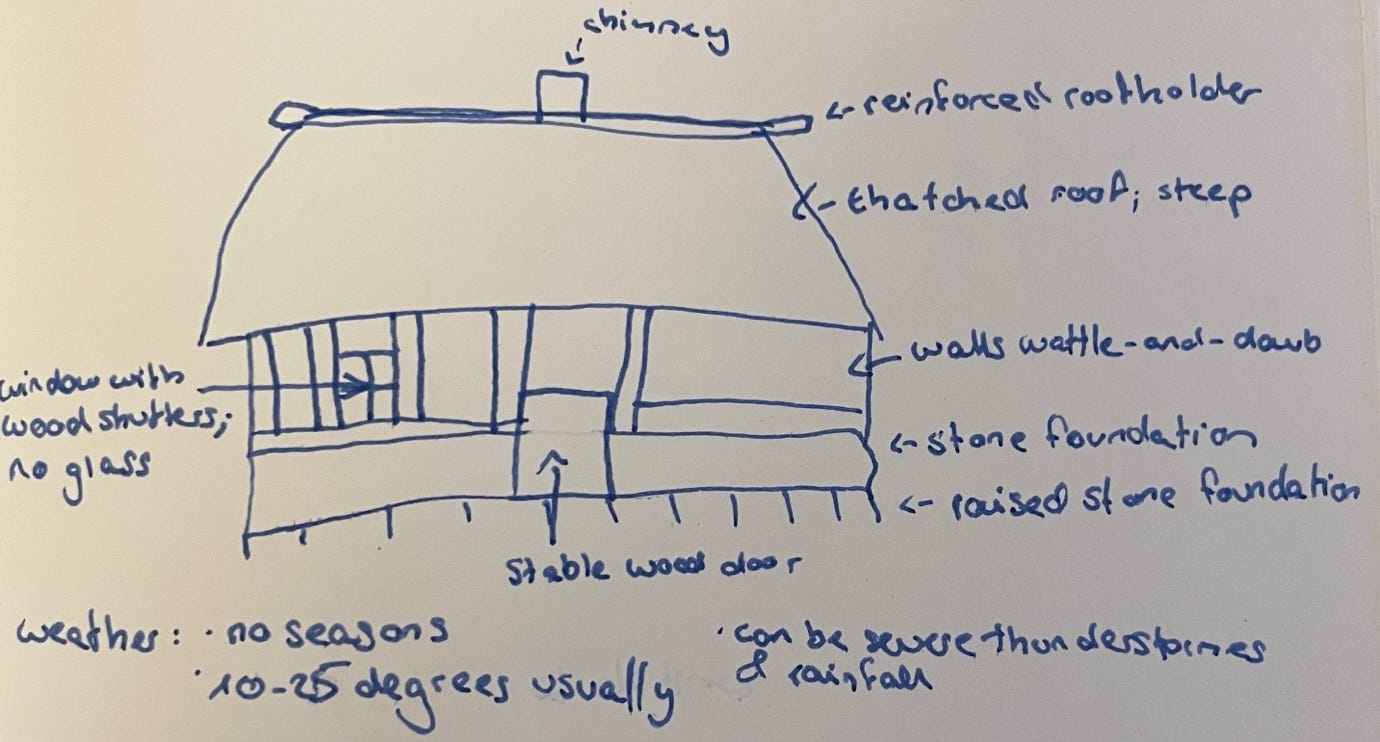 chimney
<- reinforced roofholder
<- thatched roof; steep
<- walls wattle-and-daub
window with
wood shutters;
no glass
<- stone foundation
<- raised stone foundation
stable wood door
weather: · no seasons
· 10-25 degrees usually
· can be severe thunderstormes
& rainfall